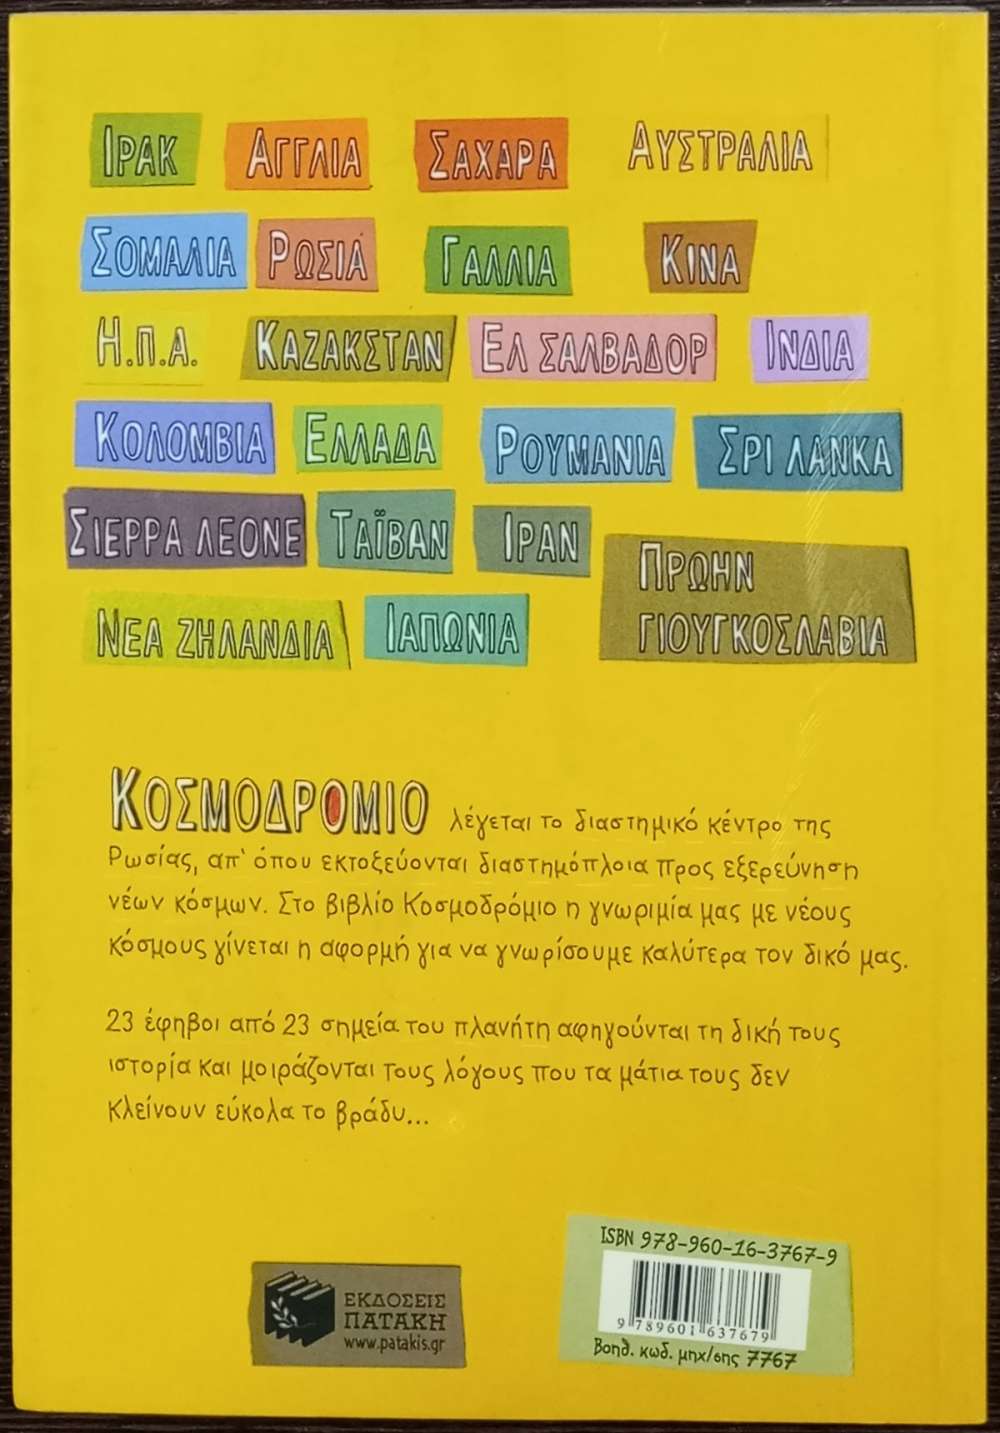 ΙΡΑΚ ΑΓΓΛΙΑ ΣΑΧΑΡΑ ΑΥΣΤΡΑΛΙΑ
ΣΟΜΑΛΙΑ ΡΩΣΙΑ ΓΑΛΛΙΑ ΚΙΝΑ
Η.Π.Α. ΚΑΖΑΚΣΤΑΝ ΕΛ ΣΑΛΒΑΔΟΡ ΙΝΔΙΑ
ΚΟΛΟΜΒΙΑ ΕΛΛΑΔΑ ΡΟΥΜΑΝΙΑ ΣΡΙ ΛΑΝΚΑ
ΣΙΕΡΡΑ ΛΕΟΝΕ ΤΑΪΒΑΝ ΙΡΑΝ
ΠΡΩΗΝ
ΓΙΟΥΓΚΟΣΛΑΒΙΑ
ΝΕΑ ΖΗΛΑΝΔΙΑ ΙΑΠΩΝΙΑ
ΚΟΣΜΟΔΡΟΜΙΟ λέγεται το διαστημικό κέντρο της
Ρωσίας, απ' όπου εκτοξεύονται διαστημόπλοια προς εξερεύνηση
νέων κόσμων. Στο βιβλίο Κοσμοδρόμιο η γνωριμία μας με νέους
κόσμους γίνεται η αφορμή για να γνωρίσουμε καλύτερα τον δικό μας.
23 έφηβοι από 23 σημεία του πλανήτη αφηγούνται τη δική τους
ιστορία και μοιράζονται τους λόγους που τα μάτια τους δεν
κλείνουν εύκολα το βράδυ...
ΕΚΔΟΣΕΙΣ
ΠΑΤΑΚΗ
www.patakis.gr
ISBN 978-960-16-3767-9
9 789601 637679
Βοηθ. κωδ. μηχ/σης 7767